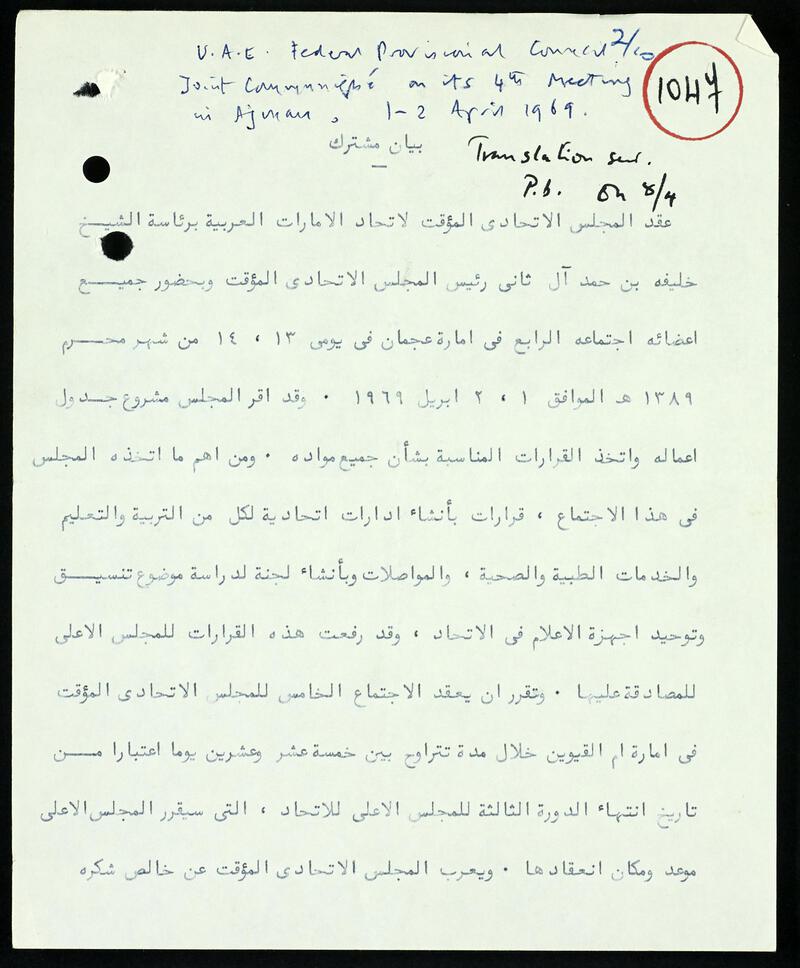 U.A.E. Federal Provisional Council 2/10
Joint Communiqué on its 4th Meeting
in Ajman, 1-2 April 1969.
1047
بيان مشترك
Translation
P.b. on 8/4
عقد المجلس الاتحادى المؤقت لاتحاد الامارات العربية برئاسة الشيخ
خليفه بن حمد آل ثانى رئيس المجلس الاتحادى المؤقت وبحضور جميع
اعضائه اجتماعه الرابع فى امارة عجمان فى يومى ١٣ ، ١٤ من شهر محرم
١٣٨٩ هـ الموافق ١ ، ٢ ابريل ١٩٦٩ . وقد اقر المجلس مشروع جدول
اعماله واتخذ القرارات المناسبة بشأن جميع مواده . ومن اهم ما اتخذه المجلس
فى هذا الاجتماع ، قرارات بأنشاء ادارات اتحادية لكل من التربية والتعليم
والخدمات الطبية والصحية ، والمواصلات وبأنشاء لجنة لدراسة موضوع تنسيق
وتوحيد اجهزة الاعلام فى الاتحاد ، وقد رفعت هذه القرارات للمجلس الاعلى
للمصادقة عليها . وتقرر ان يعقد الاجتماع الخامس للمجلس الاتحادى المؤقت
فى امارة ام القيوين خلال مدة تتراوح بين خمسة عشر وعشرين يوما اعتبارا من
تاريخ انتهاء الدورة الثالثة للمجلس الاعلى للاتحاد ، التى سيقرر المجلس الاعلى
موعد ومكان انعقادها . ويعرب المجلس الاتحادى المؤقت عن خالص شكره